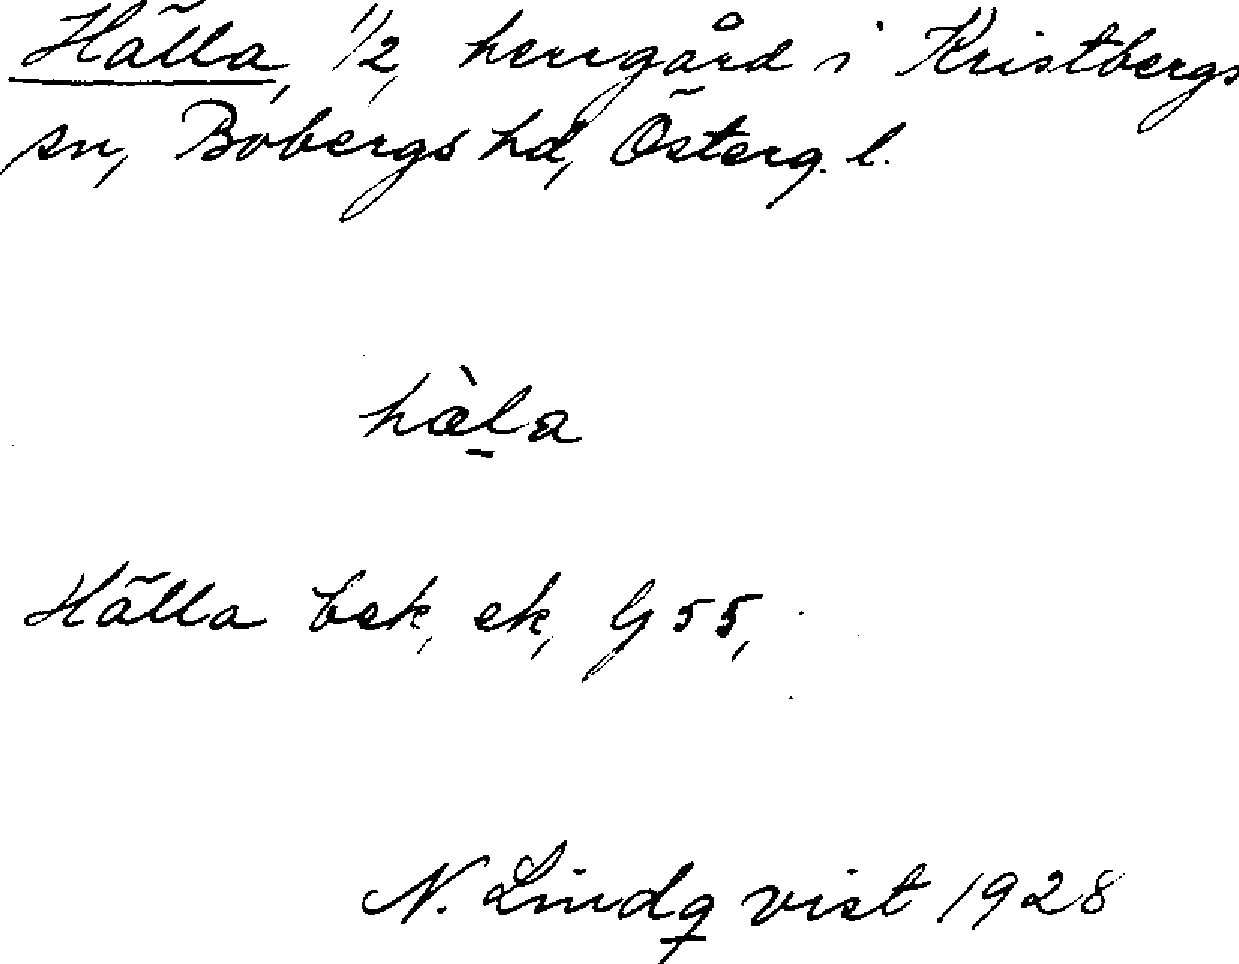 Hälla, 1/2, herrgård i Kristbergs
sn, Bobergs hd, Österg. l.
hæ̀la
Hälla bek, ek, G 55,
N. Lindqvist 1928